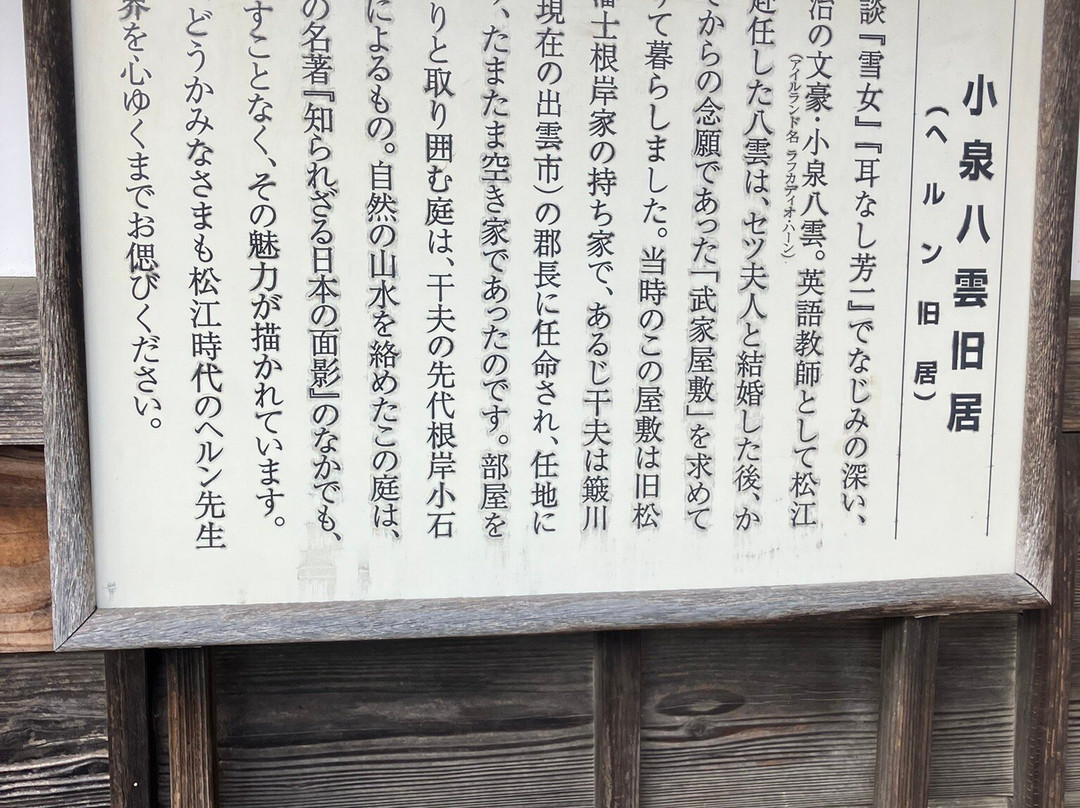 小泉八雲旧居
（ヘルン旧居）
談『雪女』『耳なし芳一』でなじみの深い、
治の文豪・小泉八雲。英語教師として松江
（アイルランド名 ラフカディオ・ハーン）
赴任した八雲は、セツ夫人と結婚した後、か
てからの念願であった「武家屋敷」を求めて
て暮らしました。当時のこの屋敷は旧松
藩士根岸家の持ち家で、あるじ干夫は簸川
現在の出雲市）の郡長に任命され、任地に
、たまたま空き家であったのです。部屋を
りと取り囲む庭は、干夫の先代根岸小石
によるもの。自然の山水を絡めたこの庭は、
の名著『知られざる日本の面影』のなかでも、
すことなく、その魅力が描かれています。
どうかみなさまも松江時代のヘルン先生
界を心ゆくまでお偲びください。